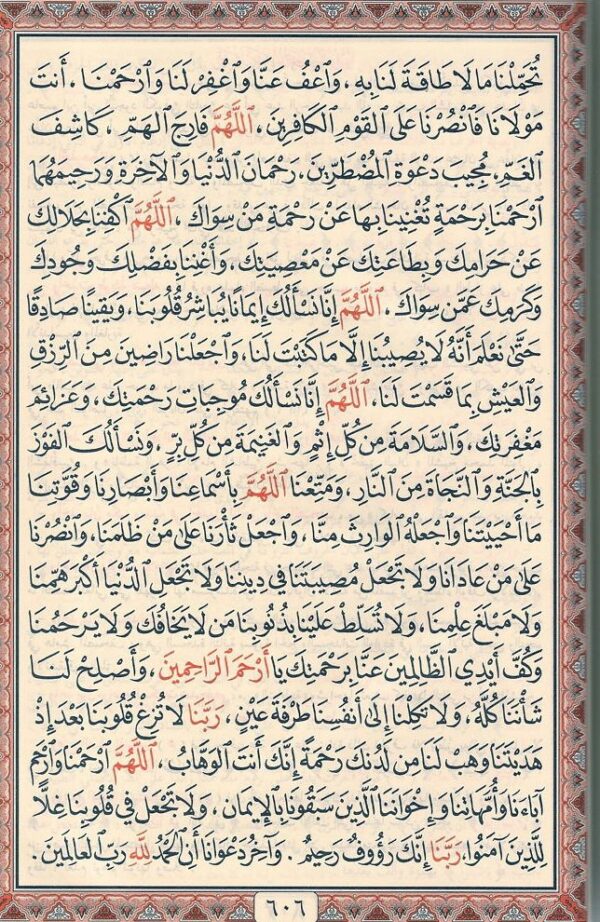 تُحَمِّلْنَا مَا لَا طَاقَةَ لَنَا بِهِ ، وَٱعْفُ عَنَّا وَٱغْفِرْ لَنَا وَٱرْحَمْنَا ، أَنتَ
مَوْلَانَا فَٱنصُرْنَا عَلَى ٱلْقَوْمِ ٱلْكَافِرِينَ ، ٱللَّهُمَّ فَارِجَ ٱلْهَمِّ ، كَاشِفَ
ٱلْغَمِّ ، مُجِيبَ دَعْوَةِ ٱلْمُضْطَرِّينَ ، رَحْمَانَ ٱلدُّنْيَا وَٱلْآخِرَةِ وَرَحِيمَهُمَا
ٱرْحَمْنَا بِرَحْمَةٍ تُغْنِينَا بِهَا عَنْ رَحْمَةِ مَنْ سِوَاكَ ، ٱللَّهُمَّ ٱكْفِنَا بِحَلَالِكَ
عَنْ حَرَامِكَ وَبِطَاعَتِكَ عَنْ مَعْصِيَتِكَ ، وَأَغْنِنَا بِفَضْلِكَ وَجُودِكَ
وَكَرَمِكَ عَمَّن سِوَاكَ . ٱللَّهُمَّ إِنَّا نَسْأَلُكَ إِيمَانًا يُبَاشِرُ قُلُوبَنَا ، وَيَقِينًا صَادِقًا
حَتَّىٰ نَعْلَمَ أَنَّهُ لَا يُصِيبُنَا إِلَّا مَا كَتَبْتَ لَنَا ، وَٱجْعَلْنَا رَاضِينَ مِنَ ٱلرِّزْقِ
وَٱلْعَيْشِ بِمَا قَسَمْتَ لَنَا ، ٱللَّهُمَّ إِنَّا نَسْأَلُكَ مُوجِبَاتِ رَحْمَتِكَ ، وَعَزَائِمَ
مَغْفِرَتِكَ ، وَٱلسَّلَامَةَ مِن كُلِّ إِثْمٍ وَٱلْغَنِيمَةَ مِن كُلِّ بِرٍّ ، وَنَسْأَلُكَ ٱلْفَوْزَ
بِٱلْجَنَّةِ وَٱلنَّجَاةَ مِنَ ٱلنَّارِ ، وَمَتِّعْنَا ٱللَّهُمَّ بِأَسْمَاعِنَا وَأَبْصَارِنَا وَقُوَّتِنَا
مَا أَحْيَيْتَنَا وَٱجْعَلْهُ ٱلْوَارِثَ مِنَّا ، وَٱجْعَلْ ثَأْرَنَا عَلَىٰ مَنْ ظَلَمَنَا ، وَٱنْصُرْنَا
عَلَىٰ مَنْ عَادَانَا وَلَا تَجْعَلْ مُصِيبَتَنَا فِي دِينِنَا وَلَا تَجْعَلِ ٱلدُّنْيَا أَكْبَرَ هَمِّنَا
وَلَا مَبْلَغَ عِلْمِنَا ، وَلَا تُسَلِّطْ عَلَيْنَا بِذُنُوبِنَا مَن لَا يَخَافُكَ وَلَا يَرْحَمُنَا
وَكُفَّ أَيْدِي ٱلظَّالِمِينَ عَنَّا بِرَحْمَتِكَ يَا أَرْحَمَ ٱلرَّاحِمِينَ ، وَأَصْلِحْ لَنَا
شَأْنَنَا كُلَّهُ ، وَلَا تَكِلْنَا إِلَىٰ أَنْفُسِنَا طَرْفَةَ عَيْنٍ ، رَبَّنَا لَا تُزِغْ قُلُوبَنَا بَعْدَ إِذْ
هَدَيْتَنَا وَهَبْ لَنَا مِن لَدُنكَ رَحْمَةً إِنَّكَ أَنتَ ٱلْوَهَّابُ ، ٱللَّهُمَّ ٱرْحَمْنَا وَٱرْحَمْ
آبَاءَنَا وَأُمَّهَاتِنَا وَإِخْوَانَنَا ٱلَّذِينَ سَبَقُونَا بِٱلْإِيمَانِ ، وَلَا تَجْعَلْ فِي قُلُوبِنَا غِلًّا
لِلَّذِينَ آمَنُوا ، رَبَّنَا إِنَّكَ رَؤُوفٌ رَحِيمٌ . وَآخِرُ دَعْوَانَا أَنِ ٱلْحَمْدُ لِلَّهِ رَبِّ ٱلْعَالَمِينَ .
٦٠٦